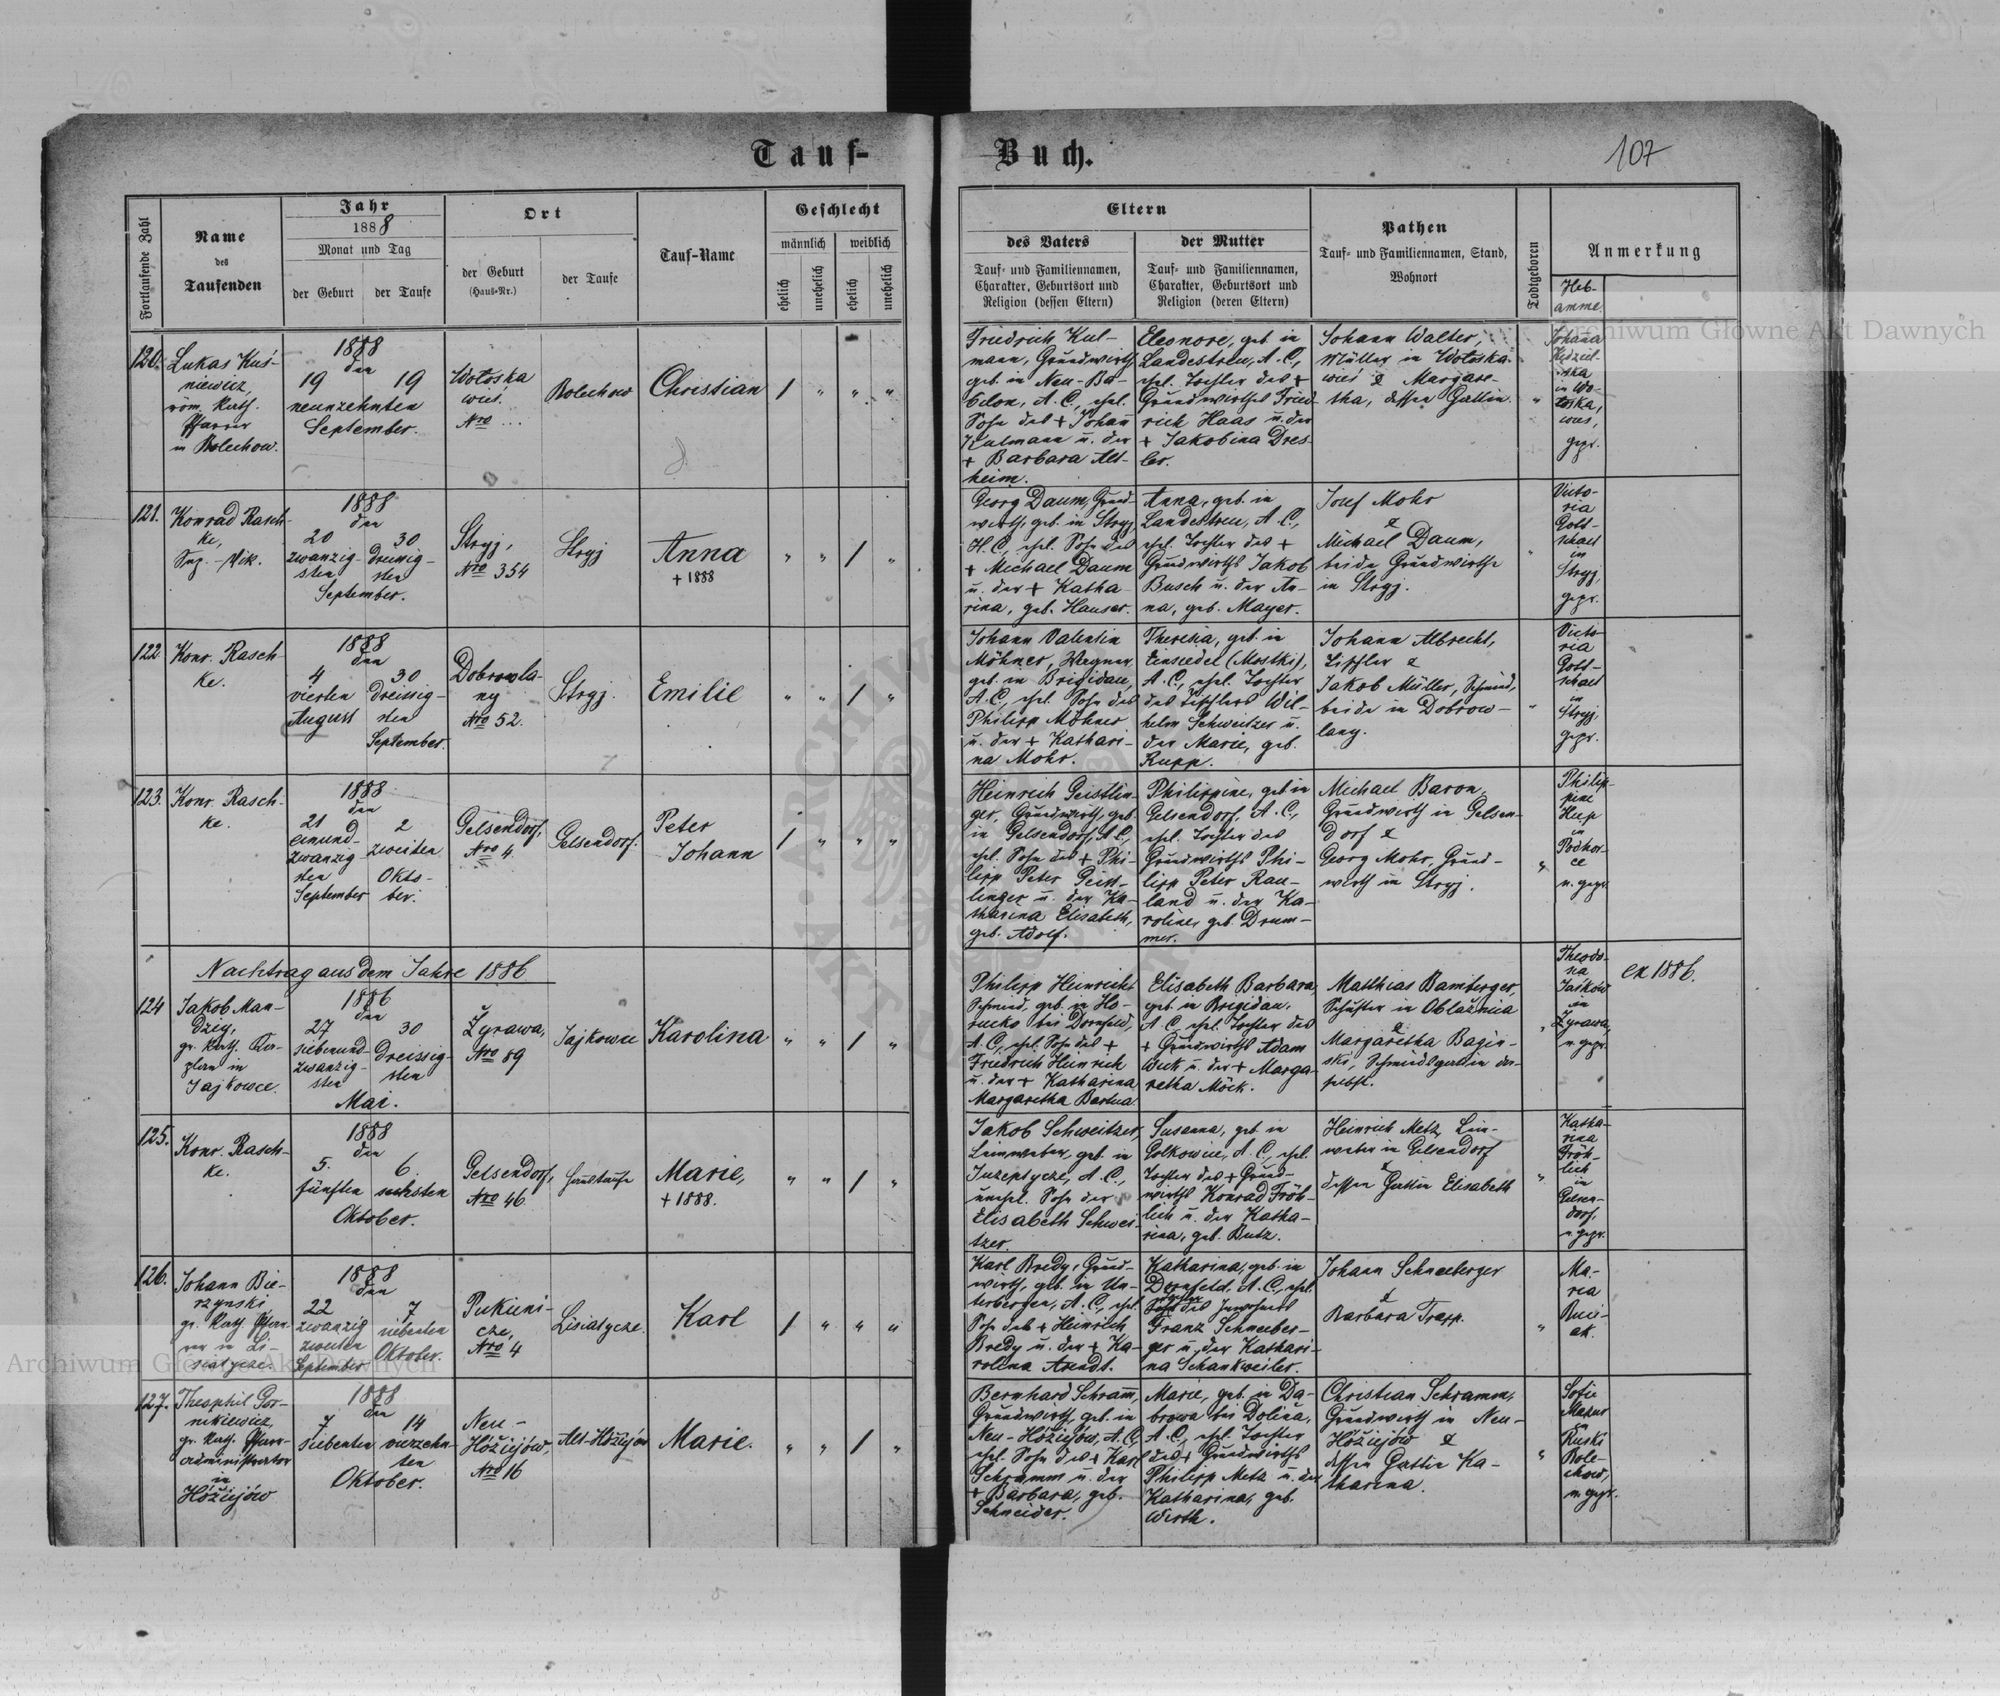 Tauf-Buch.
107
Fortlaufende Zahl
Name
des
Taufenden
Jahr
1888
Monat und Tag
der Geburt
der Taufe
Ort
der Geburt
(Haus-Nr.)
der Taufe
Tauf-Name
Geschlecht
männlich
weiblich
ehelich
unehelich
ehelich
unehelich
Eltern
des Vaters
Tauf- und Familiennamen,
Charakter, Geburtsort und
Religion (dessen Eltern)
der Mutter
Tauf- und Familiennamen,
Charakter, Geburtsort und
Religion (deren Eltern)
Pathen
Tauf- und Familiennamen, Stand,
Wohnort
Todtgeboren
Anmerkung
Heb-
amme.
120.
Lukas Kuś-
niewicz,
röm. kath.
Pfarrer
in Bolechow.
1888
den
19
19
neunzehnten
September.
Wołoska
wieś
Nro ...
Bolechow
Christian
Friedrich Kul-
mann, Grundwirth,
geb. in Neu-Ba-
bilon, A. C., ehel.
Sohn des + Johann
Kulmann u. der
+ Barbara Alt-
heim.
Eleonore, geb. in
Landestreu, A. C.,
ehel. Tochter des +
Grundwirthes Fried-
rich Haas u. der
+ Jakobina Dres-
ler.
Johann Walter,
Müller in Wołoska-
wieś & Margare-
tha, dessen Gattin.
Johana
in Wo-
łoska,
wieś,
gepr.
121.
Konrad Rasch-
ke,
Sup. - Vik.
1888
den
20
zwanzig-
sten
30
dreissig-
sten
September.
Stryj,
Nro 354
Stryj
Anna
+ 1888
Georg Daum, Grund-
wirth, geb. in Stryj,
H. C., ehel. Sohn des
+ Michael Daum
u. der + Katha-
rina, geb. Hauser.
Anna, geb. in
Landestreu, A. C.,
ehel. Tochter des +
Grundwirths Jakob
Busch u. der An-
na, geb. Mayer.
Josef Mohr
&
Michael Daum,
beide Grundwirthe
in Stryj.
Victo-
ria
Gott-
schall
in
Stryj,
gepr.
122.
Konr. Rasch-
ke.
1888
den
4
vierten
August
30
dreissig-
sten
September.
Dobrowla-
ny
Nro 52.
Stryj.
Emilie
Johann Valentin
Möhner, Wagner,
geb. in Brigidau,
A. C., ehel. Sohn des
Philipp Möhner
u. der + Kathari-
na Mohr.
Theresia, geb. in
Einsiedel (Mostki),
A. C., ehel. Tochter
des Tischlers Wil-
helm Schweitzer u.
der Marie, geb.
Rupp.
Johann Albrecht,
Tischler &
Jakob Müller, Schmied,
beide in Dobrow-
lany.
Victo-
ria
Gott-
schall
in
Stryj,
gepr.
123.
Konr. Rasch-
ke.
1888
den
21
einund-
zwanzig-
sten
September
2
zweiten
Okto-
ber.
Gelsendorf,
Nro 4.
Gelsendorf.
Peter
Johann
Heinrich Geistlin-
ger, Grundwirth, geb.
in Gelsendorf, A. C.,
ehel. Sohn des + Phi-
lipp Peter Geist-
linger u. der Ka-
tharina Elisabeth,
geb. Adolf.
Philippine, geb. in
Gelsendorf, A. C.,
ehel. Tochter des
Grundwirths Phi-
lipp Peter Rau-
land u. der Ka-
roline, geb. Drum-
mer.
Michael Baron,
Grundwirth in Gelsen-
dorf &
Georg Mohr, Grund-
wirth in Stryj.
Philip-
pine
in
Podhor-
ce
n. gepr.
Nachtrag aus dem Jahre 1886
124
Jakob Man-
dzej,
gr. kath. Ka-
plan in
Jajkowce.
1886
den
27
siebenund-
zwanzig-
sten
30
dreissig-
sten
Mai.
Żyrawa,
Nro 89
Jajkowce
Karolina
Philipp Heinrich,
Schmied, geb. in Ho-
rucko bei Dornfeld,
A. C., ehel. Sohn des +
Friedrich Heinrich
u. der + Katharina
Margaretha Bartua.
Elisabeth Barbara,
geb. in Brigidau.
A. C., ehel. Tochter des
+ Grundwirths Adam
Weik u. der + Marga-
retha Möck.
Matthias Bamberger,
Schuster in Oblaźnica
&
Margaretha Bagiń-
ski, Schmiedsgattin da-
selbst.
Theodo-
zia
Jaśków
in
Żyrawa,
n. gepr.
ex 1886.
125.
Konr. Rasch-
ke.
1888
den
5.
fünften
6.
sechsten
Oktober.
Gelsendorf,
Nro 46.
Haustaufe
Marie,
+ 1888.
Jakob Schweitzer,
Leinweber, geb. in
Juzeptycze, A. C.,
unehel. Sohn der
Elisabeth Schwei-
tzer.
Susanna, geb. in
Golkowice, A. C., ehel.
Tochter des + Grund-
wirths Konrad Fröh-
lich u. der Katha-
rina, geb. Butz.
Heinrich Metz, Lein-
weber in Gelsendorf
&
dessen Gattin Elisabeth
Katha-
rina
Fröh-
lich
in
Gelsen-
dorf,
n. gepr.
126.
Johann Bie-
rzynski,
gr. kath. Pfar-
rer in Li-
siatycze.
1888
den
22
zwanzig
zweiten
September
7
siebenten
Oktober.
Pukieni-
cze,
Nro 4
Lisiatycze.
Karl
Karl Bredy, Grund-
wirth, geb. in Un-
terbergen, A. C., ehel.
Sohn des + Heinrich
Bredy u. der + Ka-
rolina Arendt.
Katharina, geb. in
Dornfeld, A. C., ehel.
Tochter des Inwohners
Franz Schneeber-
ger u. der Kathari-
na Schankweiler.
Johann Schneeberger
&
Barbara Trapp.
Ma-
ria
127.
Theophil Gor-
nikiewicz,
gr. kath. Pfarr-
administrator
in
Hóžiejów
1888
den
7
siebenten
14
vierzehn-
ten
Oktober.
Neu-
Hóžiejów,
Nro 16
Alt-Hóžiejów
Marie.
Bernhard Schramm,
Grundwirth, geb. in
Neu-Hóžiejów, A. C.,
ehel. Sohn des + Karl
Schramm u. der
+ Barbara, geb.
Schneider.
Marie, geb. in Da-
browa bei Dolina,
A. C., ehel. Tochter
des + Grundwirths
Philipp Metz u. der
Katharina, geb.
Wirth.
Christian Schramm,
Grundwirth in Neu-
Hóžiejów &
dessen Gattin Ka-
tharina.
Sofie
Mazur
in
Ruski
Bole-
chow,
n. gepr.
Archiwum Główne Akt Dawnych
Archiwum Główne Akt Dawnych